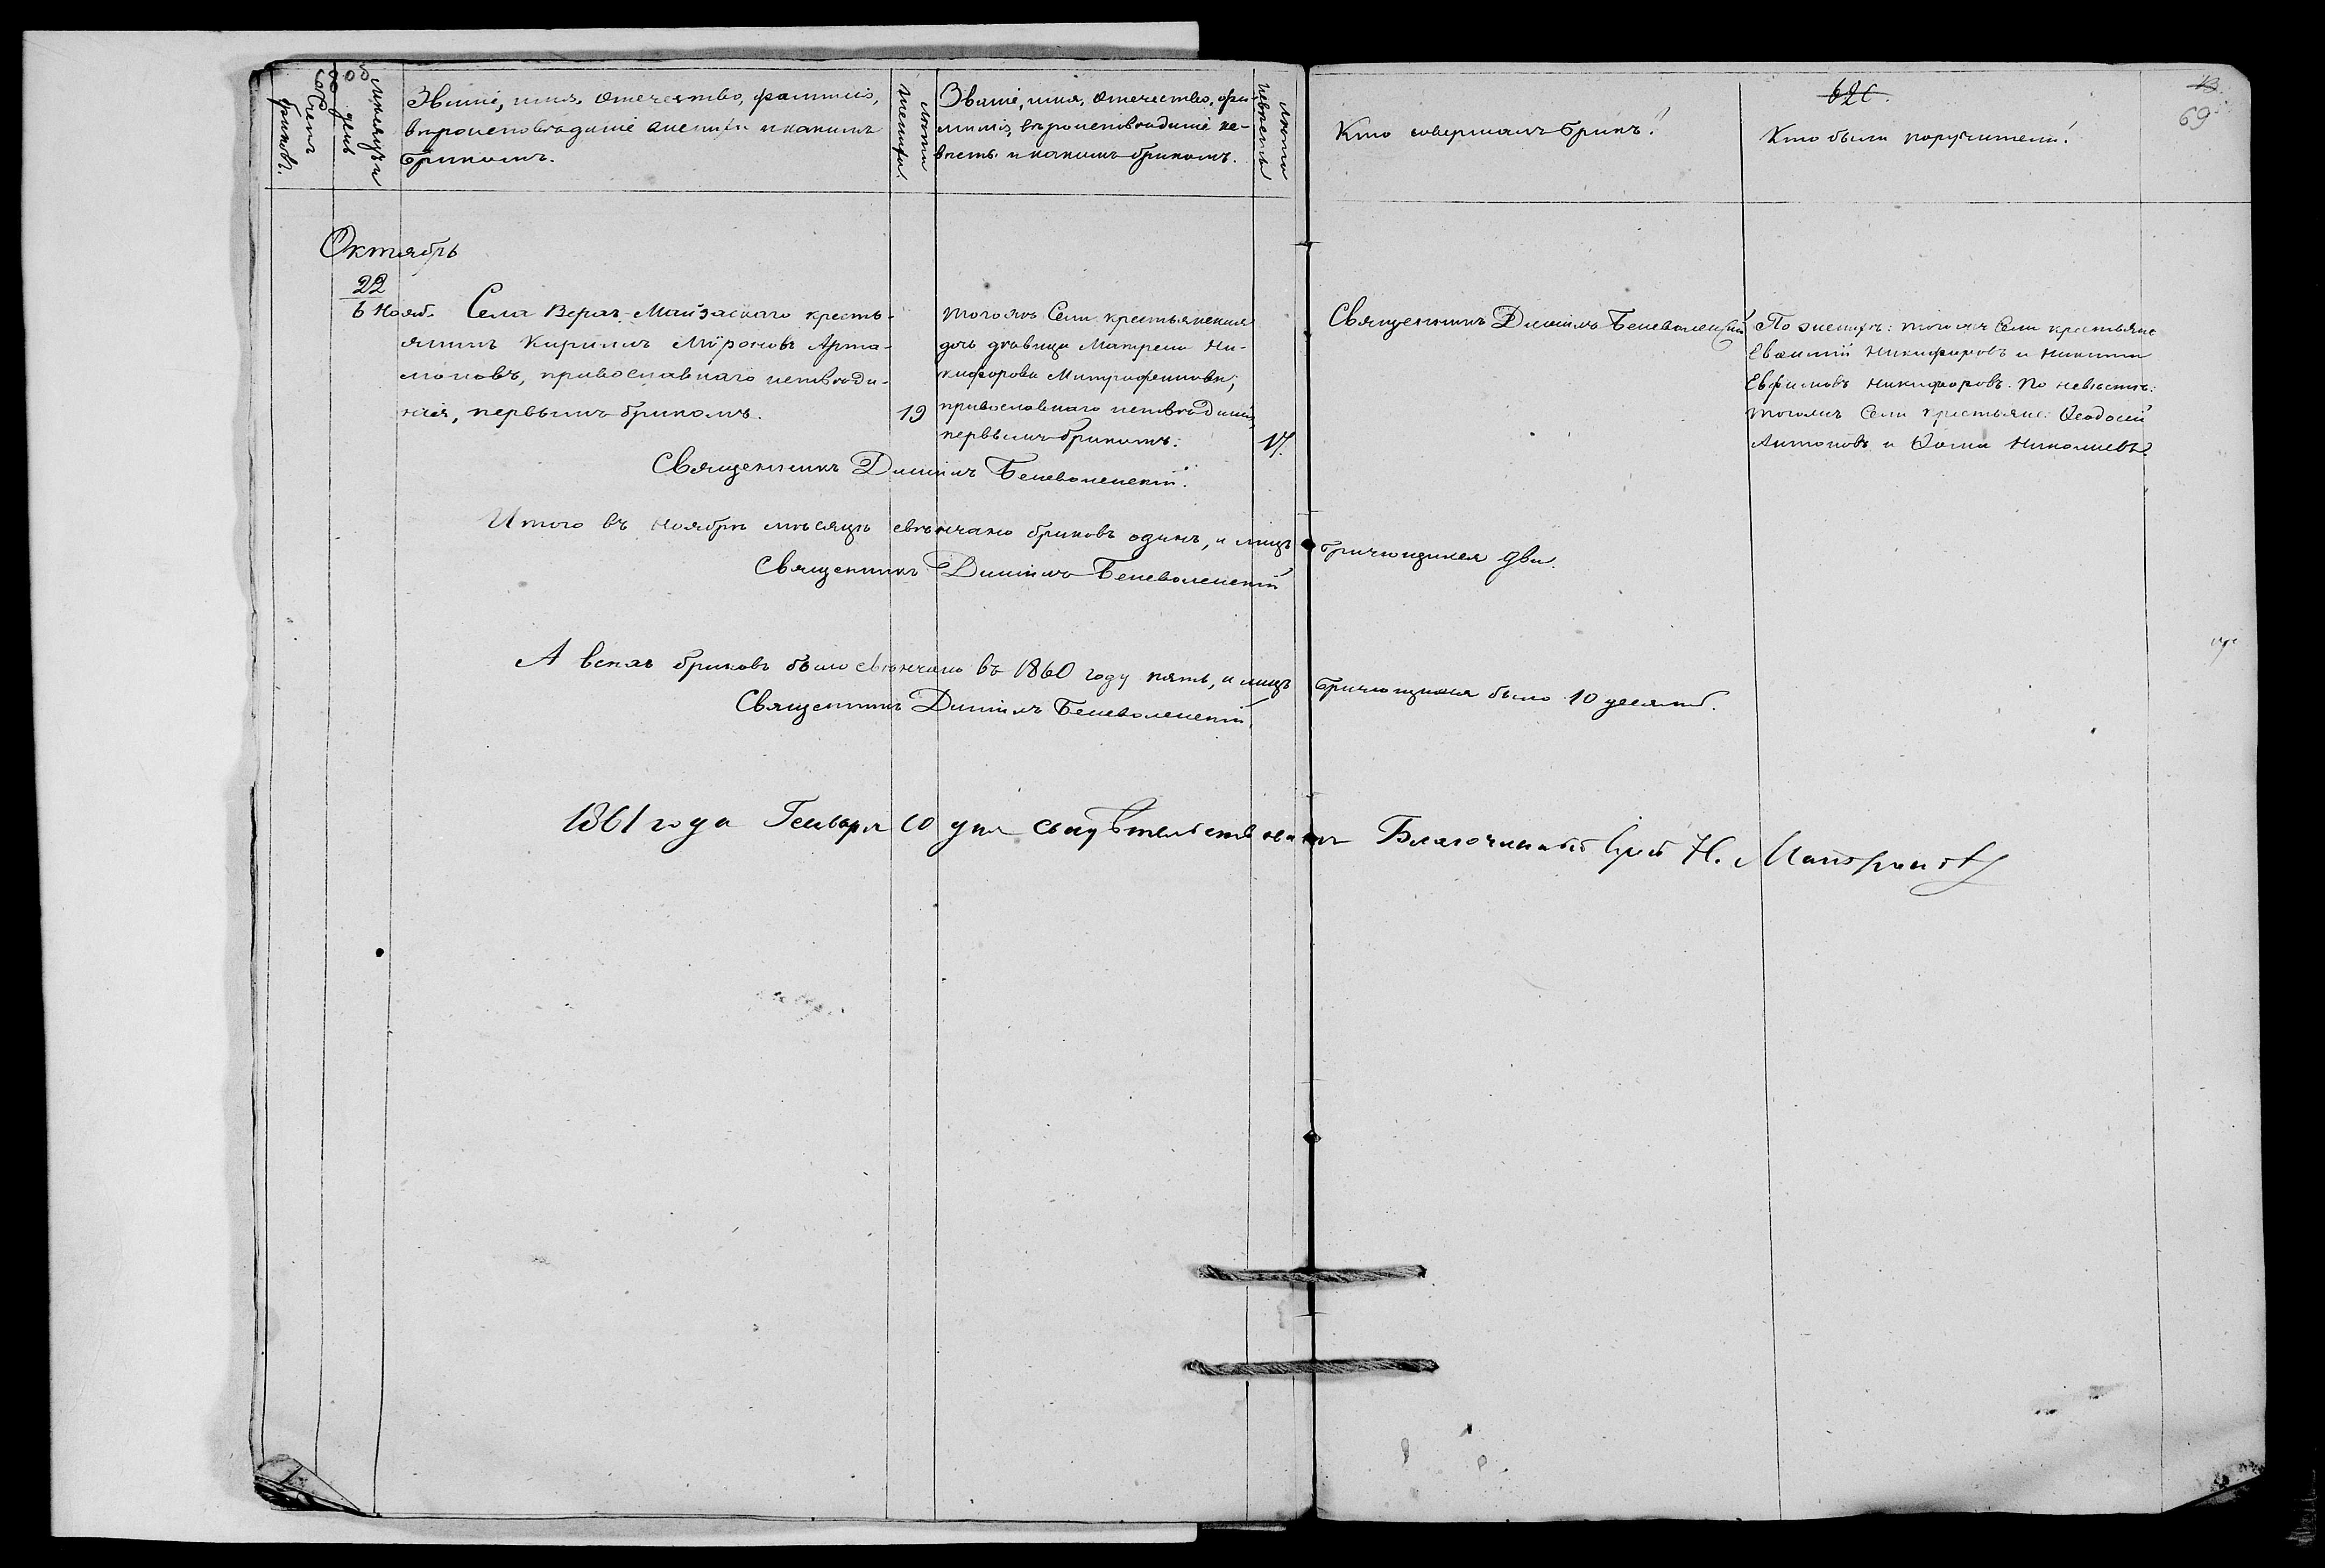 Счетъ
браковъ.
Мѣсяцъ и
день
Званіе, имя, отечество, фамилія,
вѣроисповѣданіе жениха и какимъ
бракомъ.
Лѣта
жениха.
Званіе, имя, отечество, фа-
милія, вѣроисповѣданіе не-
вѣсты и какимъ бракомъ.
Лѣта
невѣсты
Кто совершалъ бракъ?
Кто были поручители?
69
Октябрь
22
6 Нояб. Села Верхъ-Майзаскаго кресть-
янинъ Кирилъ Мѵроновъ Арта-
моновъ, православнаго исповѣда-
нія, первымъ бракомъ.
19
того же Села крестьянская
дочь дѣвица Матрена Ни-
кифорова Митрофанова,
православнаго исповѣданія,
первымъ бракомъ.
17.
Священникъ Даніилъ Беневоленскій
По женихѣ: того же Села крестьяне
Евѳимій Никифоровъ и Никита
Евфимовъ Никифоровъ. По невѣстѣ:
того же Села крестьяне: Ѳеодосій
Антоновъ и Ѳома Николаевъ.
Священникъ Даніилъ Беневоленскій.
Итого въ Ноябрѣ мѣсяцѣ свѣнчано браковъ одинъ, и лицъ брачющихся два.
Священникъ Даніилъ Беневоленскій
А всѣхъ браковъ было свѣнчано въ 1860 году пять, и лицъ брачющихся было 10 десять.
Священникъ Даніилъ Беневоленскій.
1861 года Генваря 10 дня свидѣтельствовалъ Благочинный Іерей Н.